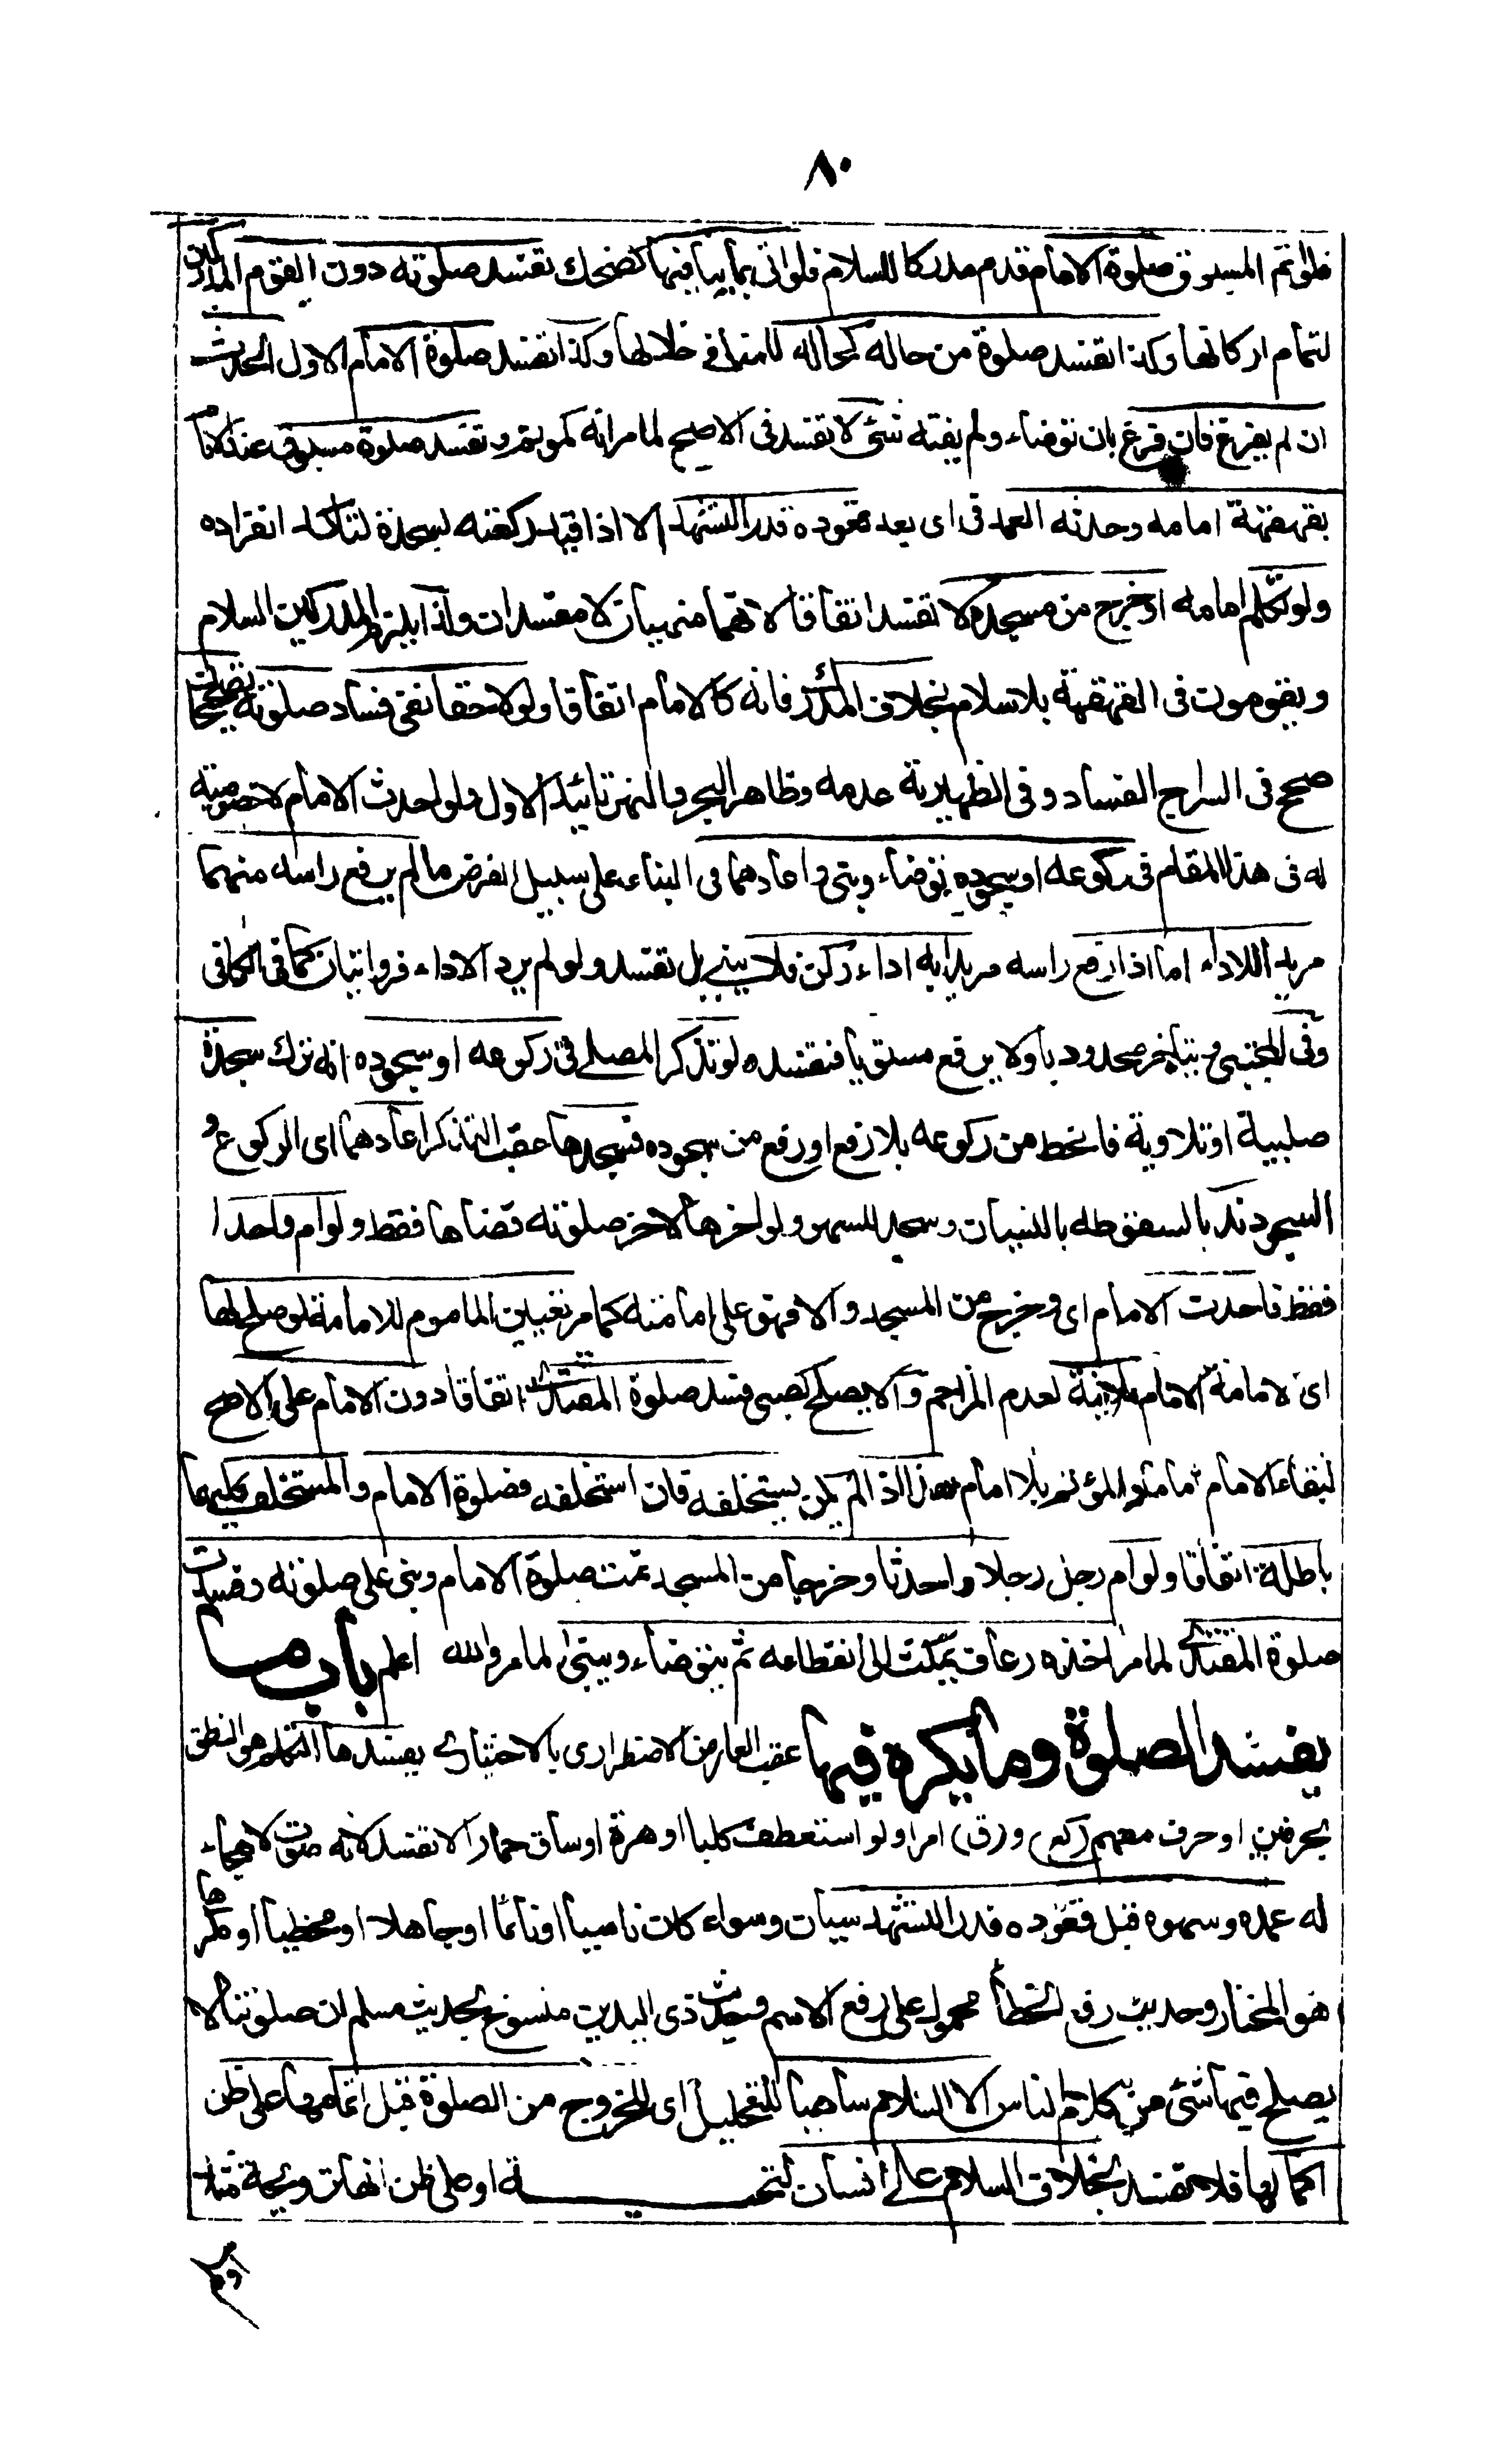 ٨٠
فلو تم المسبوق صلوة الامام قدم مدركا للسلام فلو اتى بما ينافيها كضحك تفسد صلوته دون القوم المدركين
لتمام اركانها وكذا تفسد صلوة من حاله كحاله للمنافى خلالها وكذا تفسد صلوة الامام الاول المحدث
ان لم يفرغ فان فرغ بان توضاء ولم يفته شئ لا تفسد فى الاصح لما مر انه كمؤتم وتفسد صلوة مسبوق عند الامام
بقهقهة امامه وحدثه العمد فى اى بعد قعوده قدر التشهد الا اذا قيد ركعته بسجدة لتأكد انفراده
ولو تكلم امامه او خرج من مسجده لا تفسد اتفاقا لانهما منهيان لا مفسدان ولذا يلزم المدركين السلام
ويقومون فى القهقهة بلا سلام بخلاف المدرك فانه كالامام اتفاقا ولو لاحقا ففى فساد صلوته تصحيحان
صحح فى السراج الفساد وفى الظهيرية عدمه وظاهر البحر والنهر تائيد الاول ولو احدث الامام لا خصوصية
له فى هذا المقام فى ركوعه او سجوده توضاء وبنى واعادهما فى البناء على سبيل الفرض ما لم يرفع راسه منهما
مريدا للاداء اما اذا رفع راسه مريدا به اداء ركن فلا يبنى بل تفسد ولو لم يرد الاداء فروايتان كما فى الكافى
وفى المجتبى ويتأخر محدودبا ولا يرفع مستويا فتفسد ولو تذكر المصلى فى ركوعه او سجوده انه ترك سجدة
صلبية او تلاوية فانحط من ركوعه بلا رفع او رفع من سجوده فسجدها عقب التذكر اعادهما اى الركوع و
السجود ندبا لسقوطه بالنسيان وسجد للسهو ولو اخرها لاخر صلوته قضاها فقط ولو ام واحدا
فقط فاحدث الامام اى وخرج من المسجد والا فهو على امامته كما مر تعين الماموم للامامة لو صلح لها
اى لامامة الامام بلا نية لعدم المزاحم والا يصلح كصبى فسد صلوة المقتدى اتفاقا دون الامام على الاصح
لبقاء الامام اماما والمؤتم بلا امام هذا اذا لم يكن يستخلفه فان استخلفه فصلوة الامام والمستخلف كليهما
باطلة اتفاقا ولو ام رجل رجلا واحدثا وخرجا من المسجد تمت صلوة الامام وبنى على صلوته وفسدت
صلوة المقتدى لما مر اخذه رعاف يمكث الى انقطاعه ثم يتوضاء ويبنى لما مر والله اعلم باب ما
يفسد الصلوة وما يكره فيها عقب العارض الاضطرارى بالاختيارى يفسدها التكلم هو النطق
بحرفين او حرف مفهم (كع) و (ق) امرا ولو استعطف كلبا او هرة او ساق حمارا لا تفسد لانه صوت لا هجاء
له عمده وسهوه قبل قعوده قدر التشهد سيان وسواء كان ناسيا او نائما او جاهلا او مخطيا او مكرها
هو المختار وحديث رفع الخطأ محمول على رفع الاسم وحديث ذى اليدين منسوخ بحديث مسلم ان صلوتنا لا
يصلح فيها شئ من كلام الناس الا السلام ساهيا للتحليل اى للخروج من الصلوة قبل اتمامها على ظن
اكمالها فلا تفسد بخلاف السلام على انسان لتحيـة او على ظن انها ترويحة مثلا